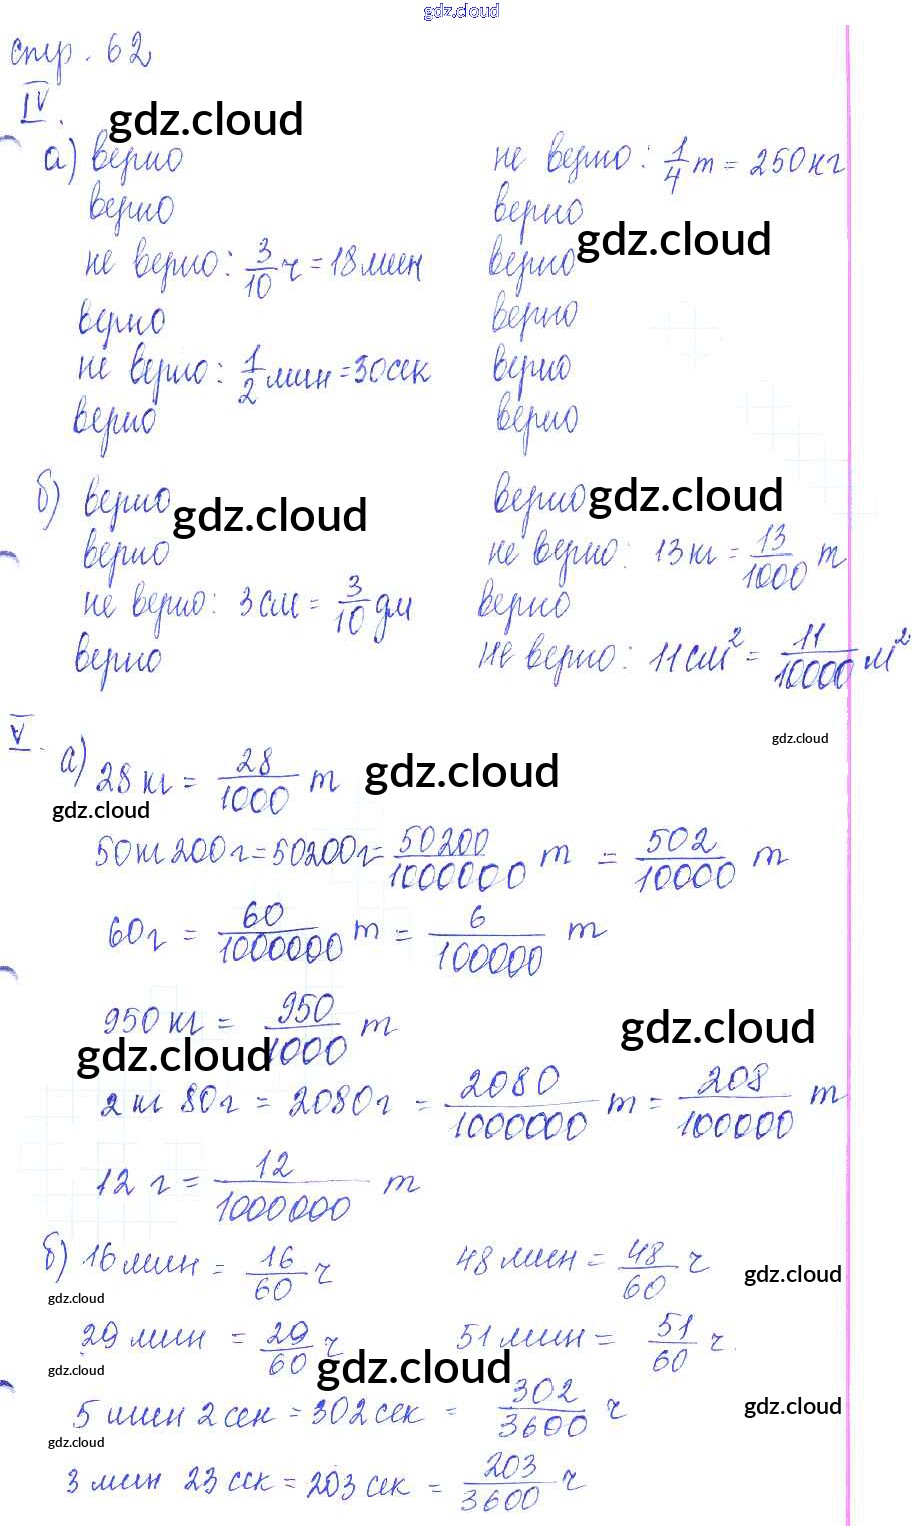 gdz.cloud
стр. 62
IV.
gdz.cloud
а) верно
не верно: 1/4 т = 250 кг
верно
верно
gdz.cloud
не верно: 3/10 ч = 18 мин
верно
верно
верно
не верно: 1/2 мин = 30 сек
верно
верно
верно
б) верно
gdz.cloud
верно
gdz.cloud
верно
не верно: 13 кг = 13/1000 т
не верно: 3 см = 3/10 дм
верно
верно
не верно: 11 см² = 11/10000 м²
V.
gdz.cloud
а) 28 кг = 28/1000 т
gdz.cloud
gdz.cloud
50 кг 200 г = 50200 г = 50200/1000000 т = 502/10000 т
60 г = 60/1000000 т = 6/100000 т
950 кг = 950/1000 т
gdz.cloud
gdz.cloud
2 кг 80 г = 2080 г = 2080/1000000 т = 208/100000 т
12 г = 12/1000000 т
б) 16 мин = 16/60 ч
48 мин = 48/60 ч
gdz.cloud
gdz.cloud
29 мин = 29/60 ч
51 мин = 51/60 ч
gdz.cloud
gdz.cloud
5 мин 2 сек = 302 сек = 302/3600 ч
gdz.cloud
gdz.cloud
3 мин 23 сек = 203 сек = 203/3600 ч